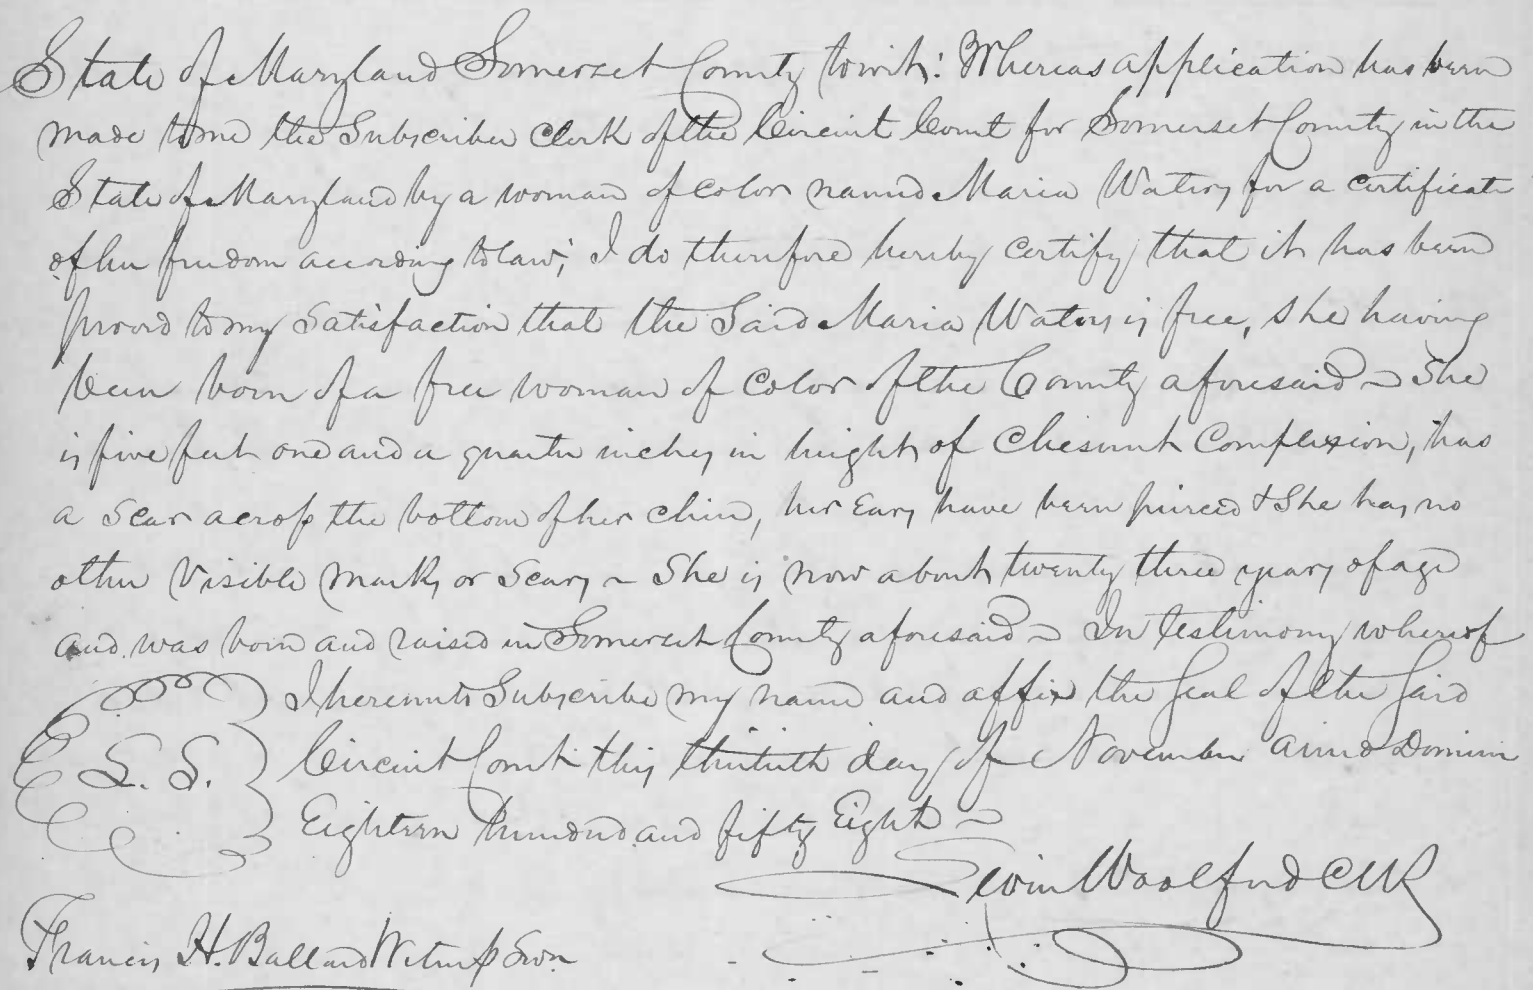 State of Maryland Somerset County towit: Whereas application has been
made to me the Subscriber Clerk of the Circuit Court for Somerset County in the
State of Maryland by a woman of color named Maria Waters for a certificate
of her freedom according to law; I do therefore hereby certify that it has been
proved to my Satisfaction that the Said Maria Waters is free, she having
been born of a free woman of color of the County aforesaid ~ She
is five feet one and a quarter inches in height, of Chesnut Complexion, has
a Scar across the bottom of her chin, her Ears have been pierced & She has no
other Visible Marks or Scars ~ She is now about twenty three years of age
and was born and raised in Somerset County aforesaid ~ In testimony whereof
I hereunto Subscribe my name and affix the Seal of the Said
L. S. Circuit Court this thirtieth day of November Anno Domini
Eighteen hundred and fifty Eight ~
Levin Woolford Clk
Francis H. Ballard Witness Sworn